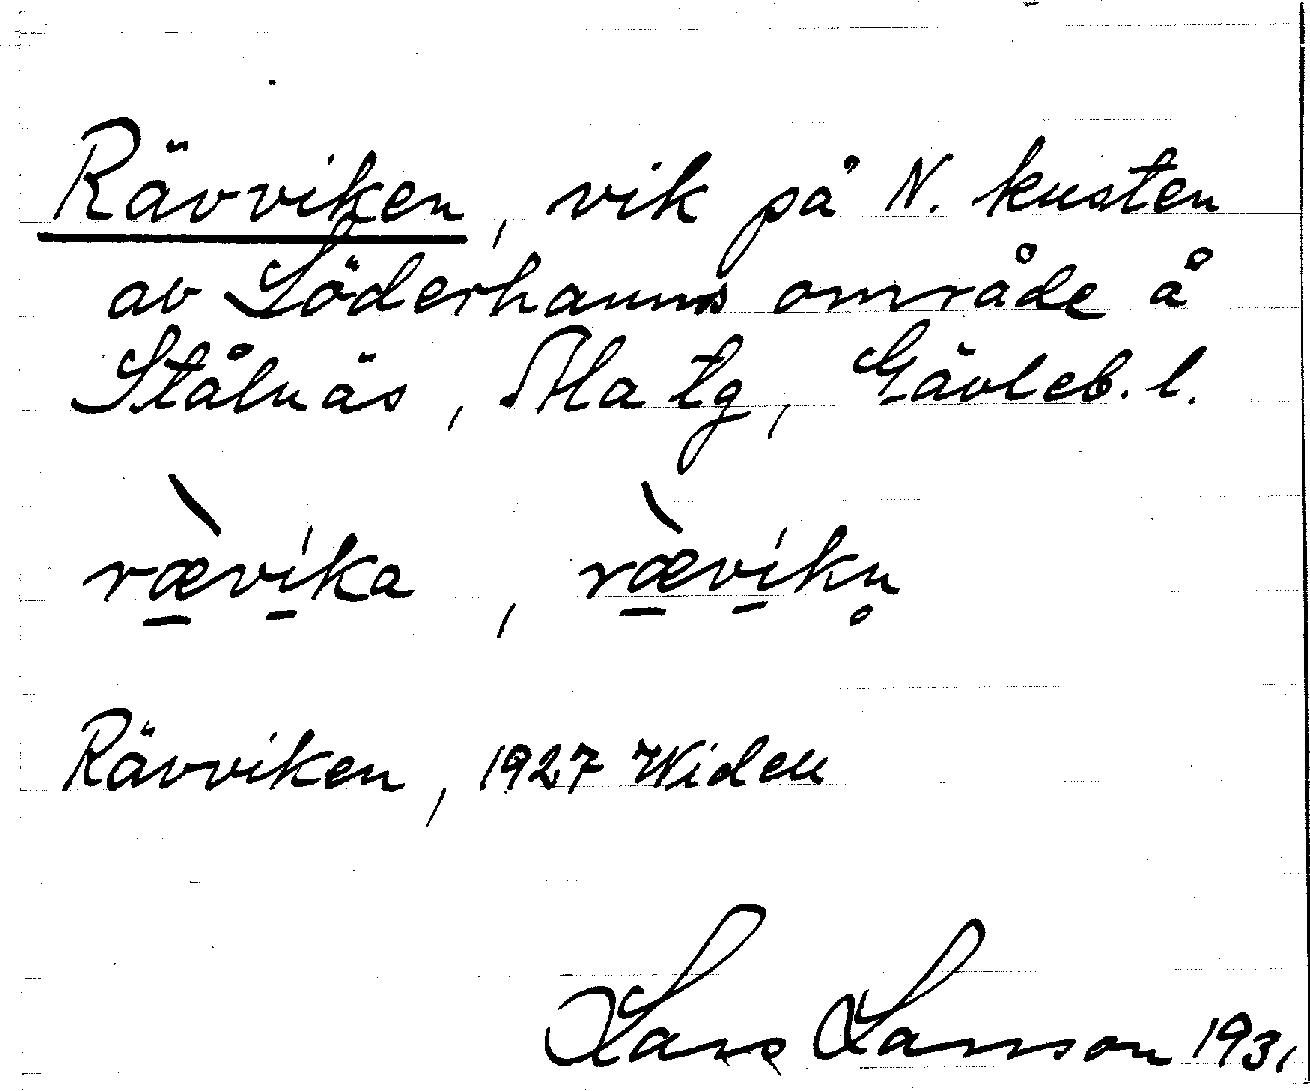 Rävviken, vik på N. kusten
av Söderhamns område å
Stålnäs, Ala tg, Gävleb. l.
ræ̀vika, ræ̀vikn̥
Rävviken, 1927 Widén
Lars Larsson 1931